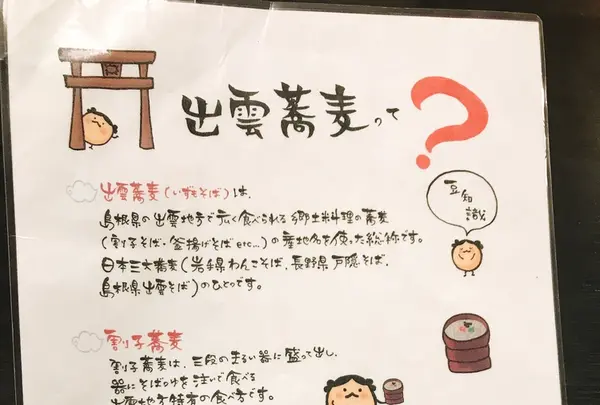 出雲蕎麦って?
出雲蕎麦(いずもそば)は、
島根県の出雲地方で広く食べられる郷土料理の蕎麦
(割子そば・釜揚げそばetc...)の産地名を使った総称です。
日本三大蕎麦(岩手県わんこそば、長野県戸隠そば、
島根県出雲そば)のひとつです。
豆知識
割子蕎麦
割子蕎麦は、三段の丸い器に盛って出し、
器にそばつゆを注いで食べる
出雲地方特有の食べ方です。